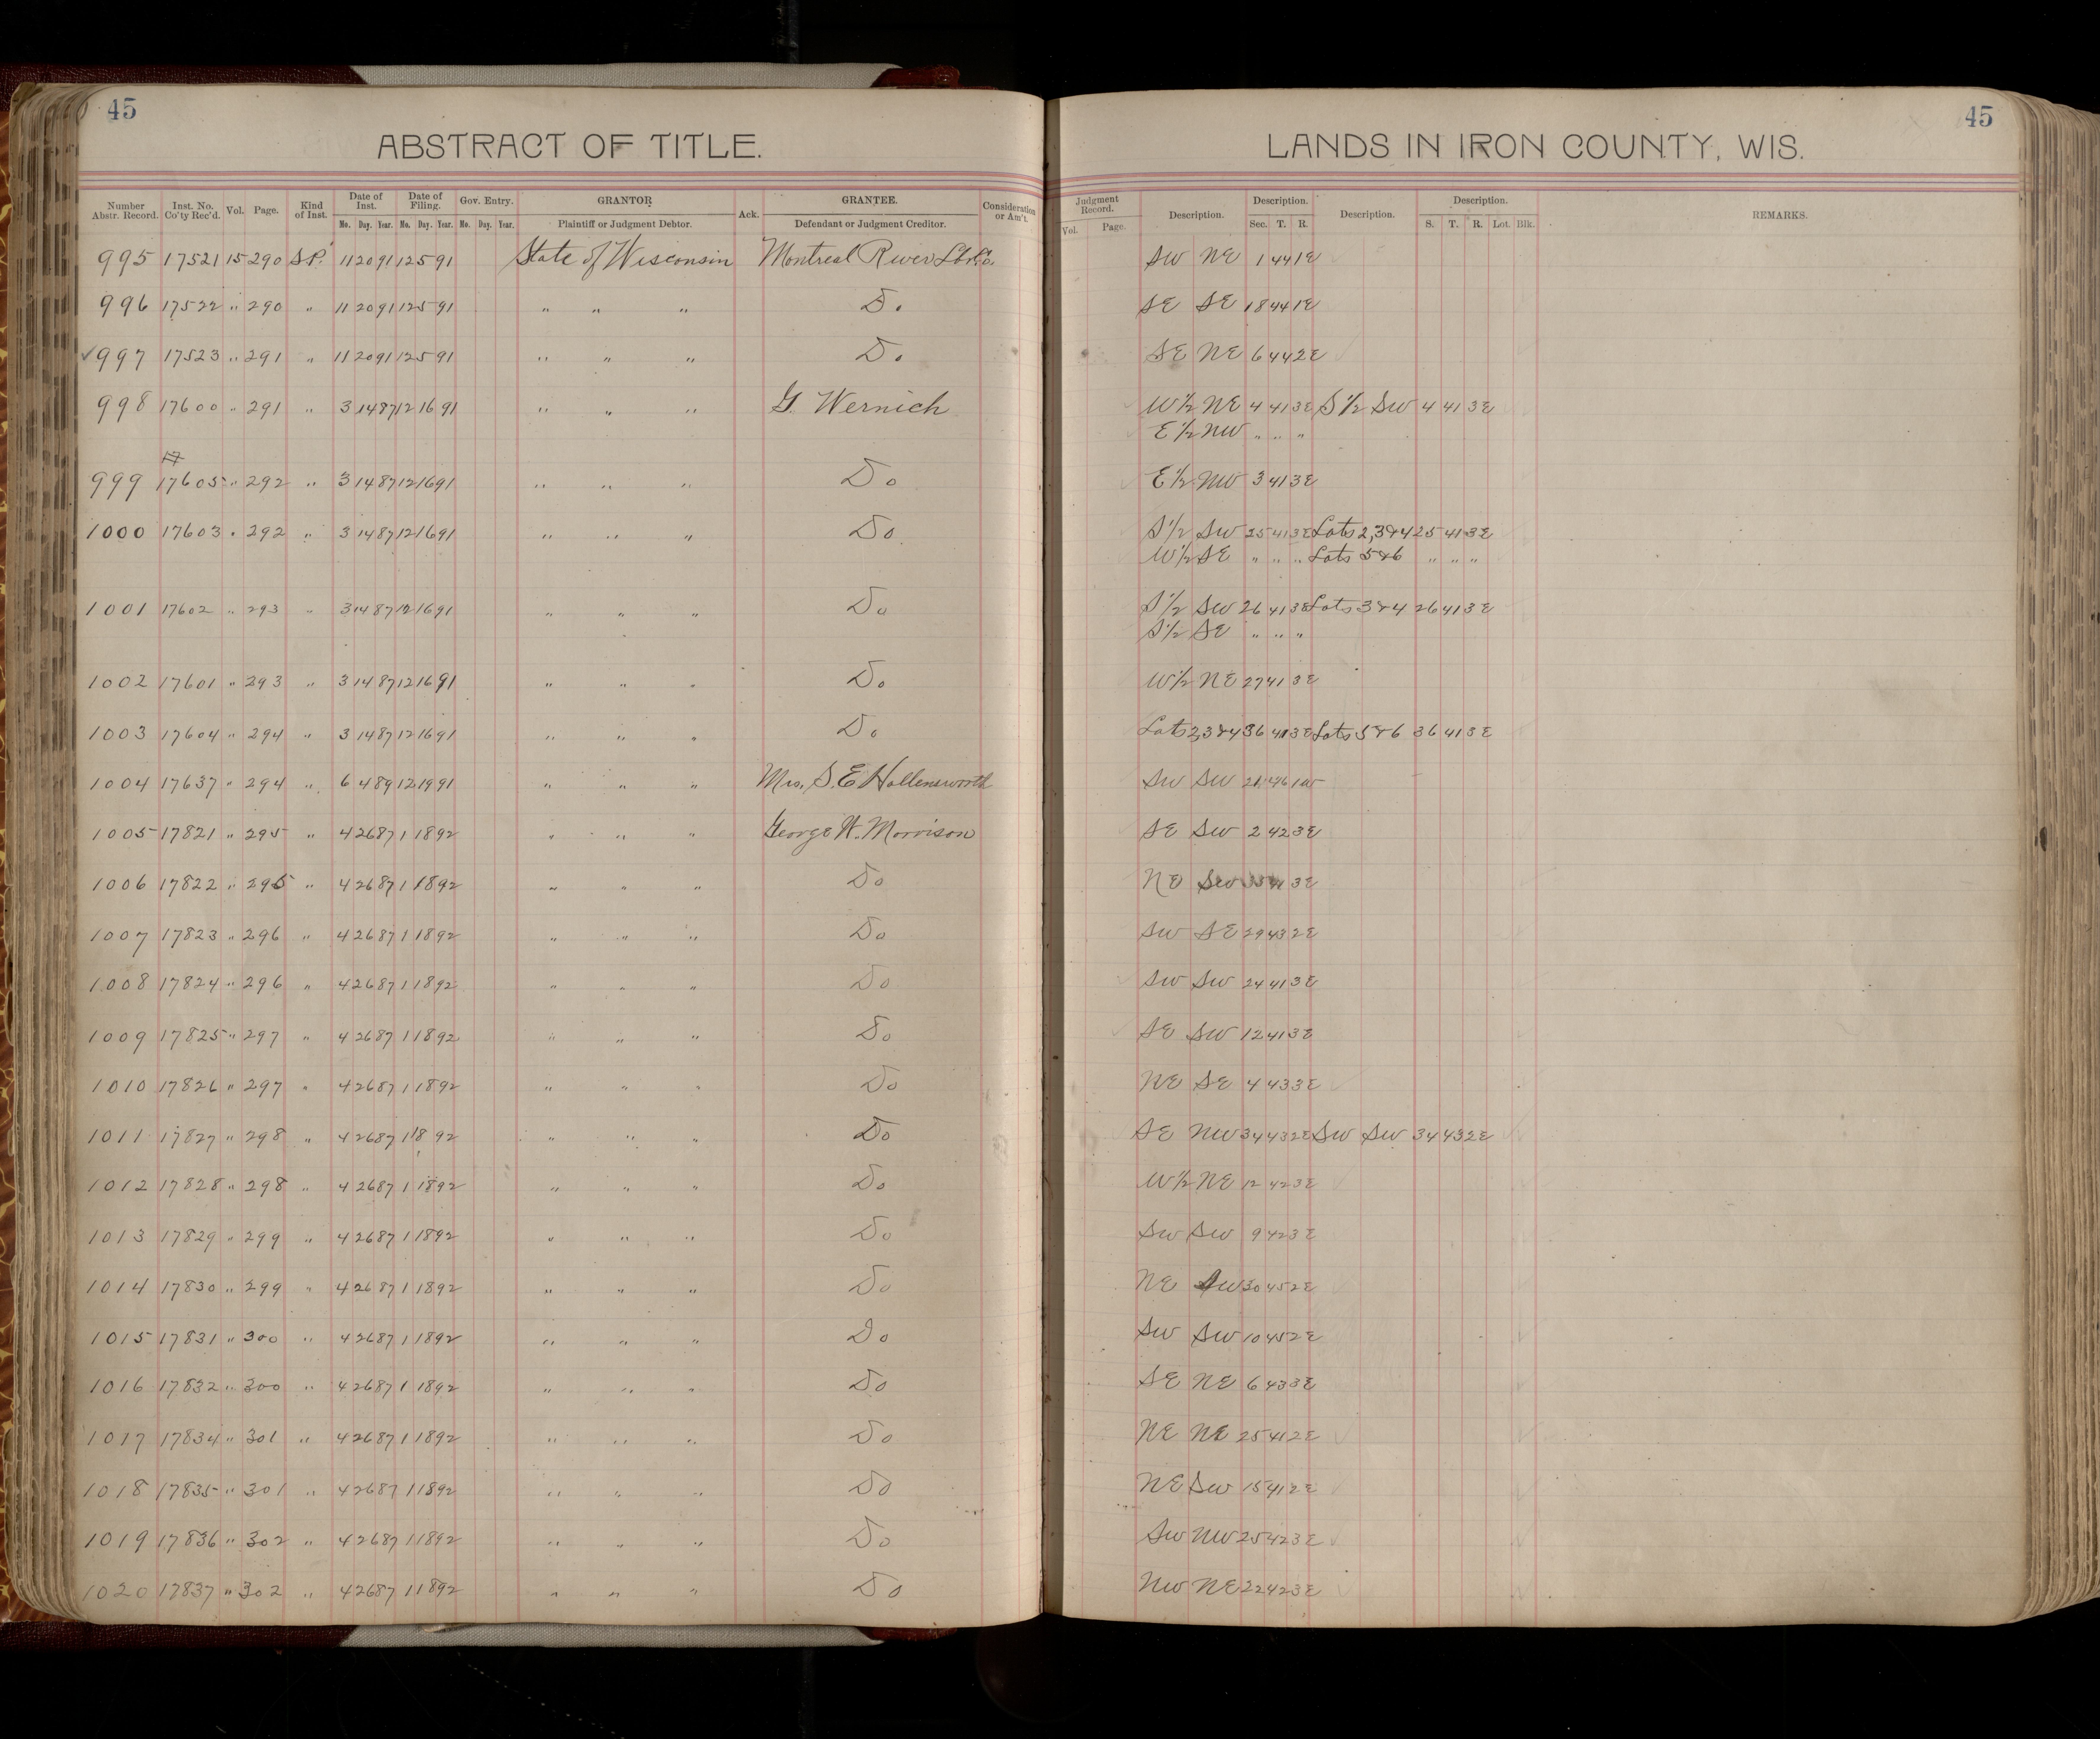 45
ABSTRACT OF TITLE.
Number Abstr. Record. Inst. No. Co'ty Rec'd. Vol. Page. Kind of Inst. Date of Inst. Mo. Day. Year. Date of Filing. Mo. Day. Year. Gov. Entry. Mo. Day. Year. GRANTOR Plaintiff or Judgment Debtor. Ack. GRANTEE. Defendant or Judgment Creditor. Consideration or Am't.
45
LANDS IN IRON COUNTY, WIS.
Judgment Record. Vol. Page. Description. Description. Sec. T. R. Description. Description. S. T. R. Lot. Blk. REMARKS.
995 17521 15 290 S.P. 11 20 91 12 5 91 State of Wisconsin Montreal River Lbr. Co. SW NE 1 44 1E
996 17522 " 290 " 11 20 91 12 5 91 " " " Do. SE SE 18 44 1E
✓997 17523 " 291 " 11 20 91 12 5 91 " " " Do SE NE 6 44 2E
998 17600 " 291 " 3 14 87 12 16 91 " " " G. Wernich W½ NE 4 41 3E S½ SW 4 41 3E
E½ NW " " "
999 17605 " 292 " 3 14 87 12 16 91 " " " Do E½ NW 3 41 3E
1000 17603 " 292 " 3 14 87 12 16 91 " " " Do S½ SW 25 41 3E Lots 2,3&4 25 41 3E
W½ SE " " " Lots 5&6 " " "
1001 17602 " 293 " 3 14 87 12 16 91 " " " Do S½ SW 26 41 3E Lots 3&4 26 41 3E
S½ SE " " "
1002 17601 " 293 " 3 14 87 12 16 91 " " " Do W½ NE 27 41 3E
1003 17604 " 294 " 3 14 87 12 16 91 " " " Do Lots 2,3&4 36 41 3E Lots 5&6 36 41 3E
1004 17637 " 294 " 6 4 89 12 19 91 " " " Mrs. S. E. Hollensworth SW SW 21 46 1W
1005 17821 " 295 " 4 26 87 1 18 92 " " " George W. Morrison SE SW 2 42 3E
1006 17822 " 295 " 4 26 87 1 18 92 " " " Do NE SW 3E
1007 17823 " 296 " 4 26 87 1 18 92 " " " Do SW SE 29 43 2E
1008 17824 " 296 " 4 26 87 1 18 92 " " " Do SW SW 24 41 3E
1009 17825 " 297 " 4 26 87 1 18 92 " " " Do SE SW 12 41 3E
1010 17826 " 297 " 4 26 87 1 18 92 " " " Do NE SE 4 43 3E
1011 17827 " 298 " 4 26 87 1 18 92 " " " Do SE NW 34 43 2E SW SW 34 43 2E
1012 17828 " 298 " 4 26 87 1 18 92 " " " Do W½ NE 12 42 3E
1013 17829 " 299 " 4 26 87 1 18 92 " " " Do SW SW 9 42 3E
1014 17830 " 299 " 4 26 87 1 18 92 " " " Do NE SW 30 45 2E
1015 17831 " 300 " 4 26 87 1 18 92 " " " Do SW SW 10 45 2E
1016 17832 " 300 " 4 26 87 1 18 92 " " " Do SE NE 6 43 3E
1017 17834 " 301 " 4 26 87 1 18 92 " " " Do NE NE 25 41 2E
1018 17835 " 301 " 4 26 87 1 18 92 " " " Do NE SW 15 41 2E
1019 17836 " 302 " 4 26 87 1 18 92 " " " Do SW NW 25 42 3E
1020 17837 " 302 " 4 26 87 1 18 92 " " " Do NW NE 22 42 3E